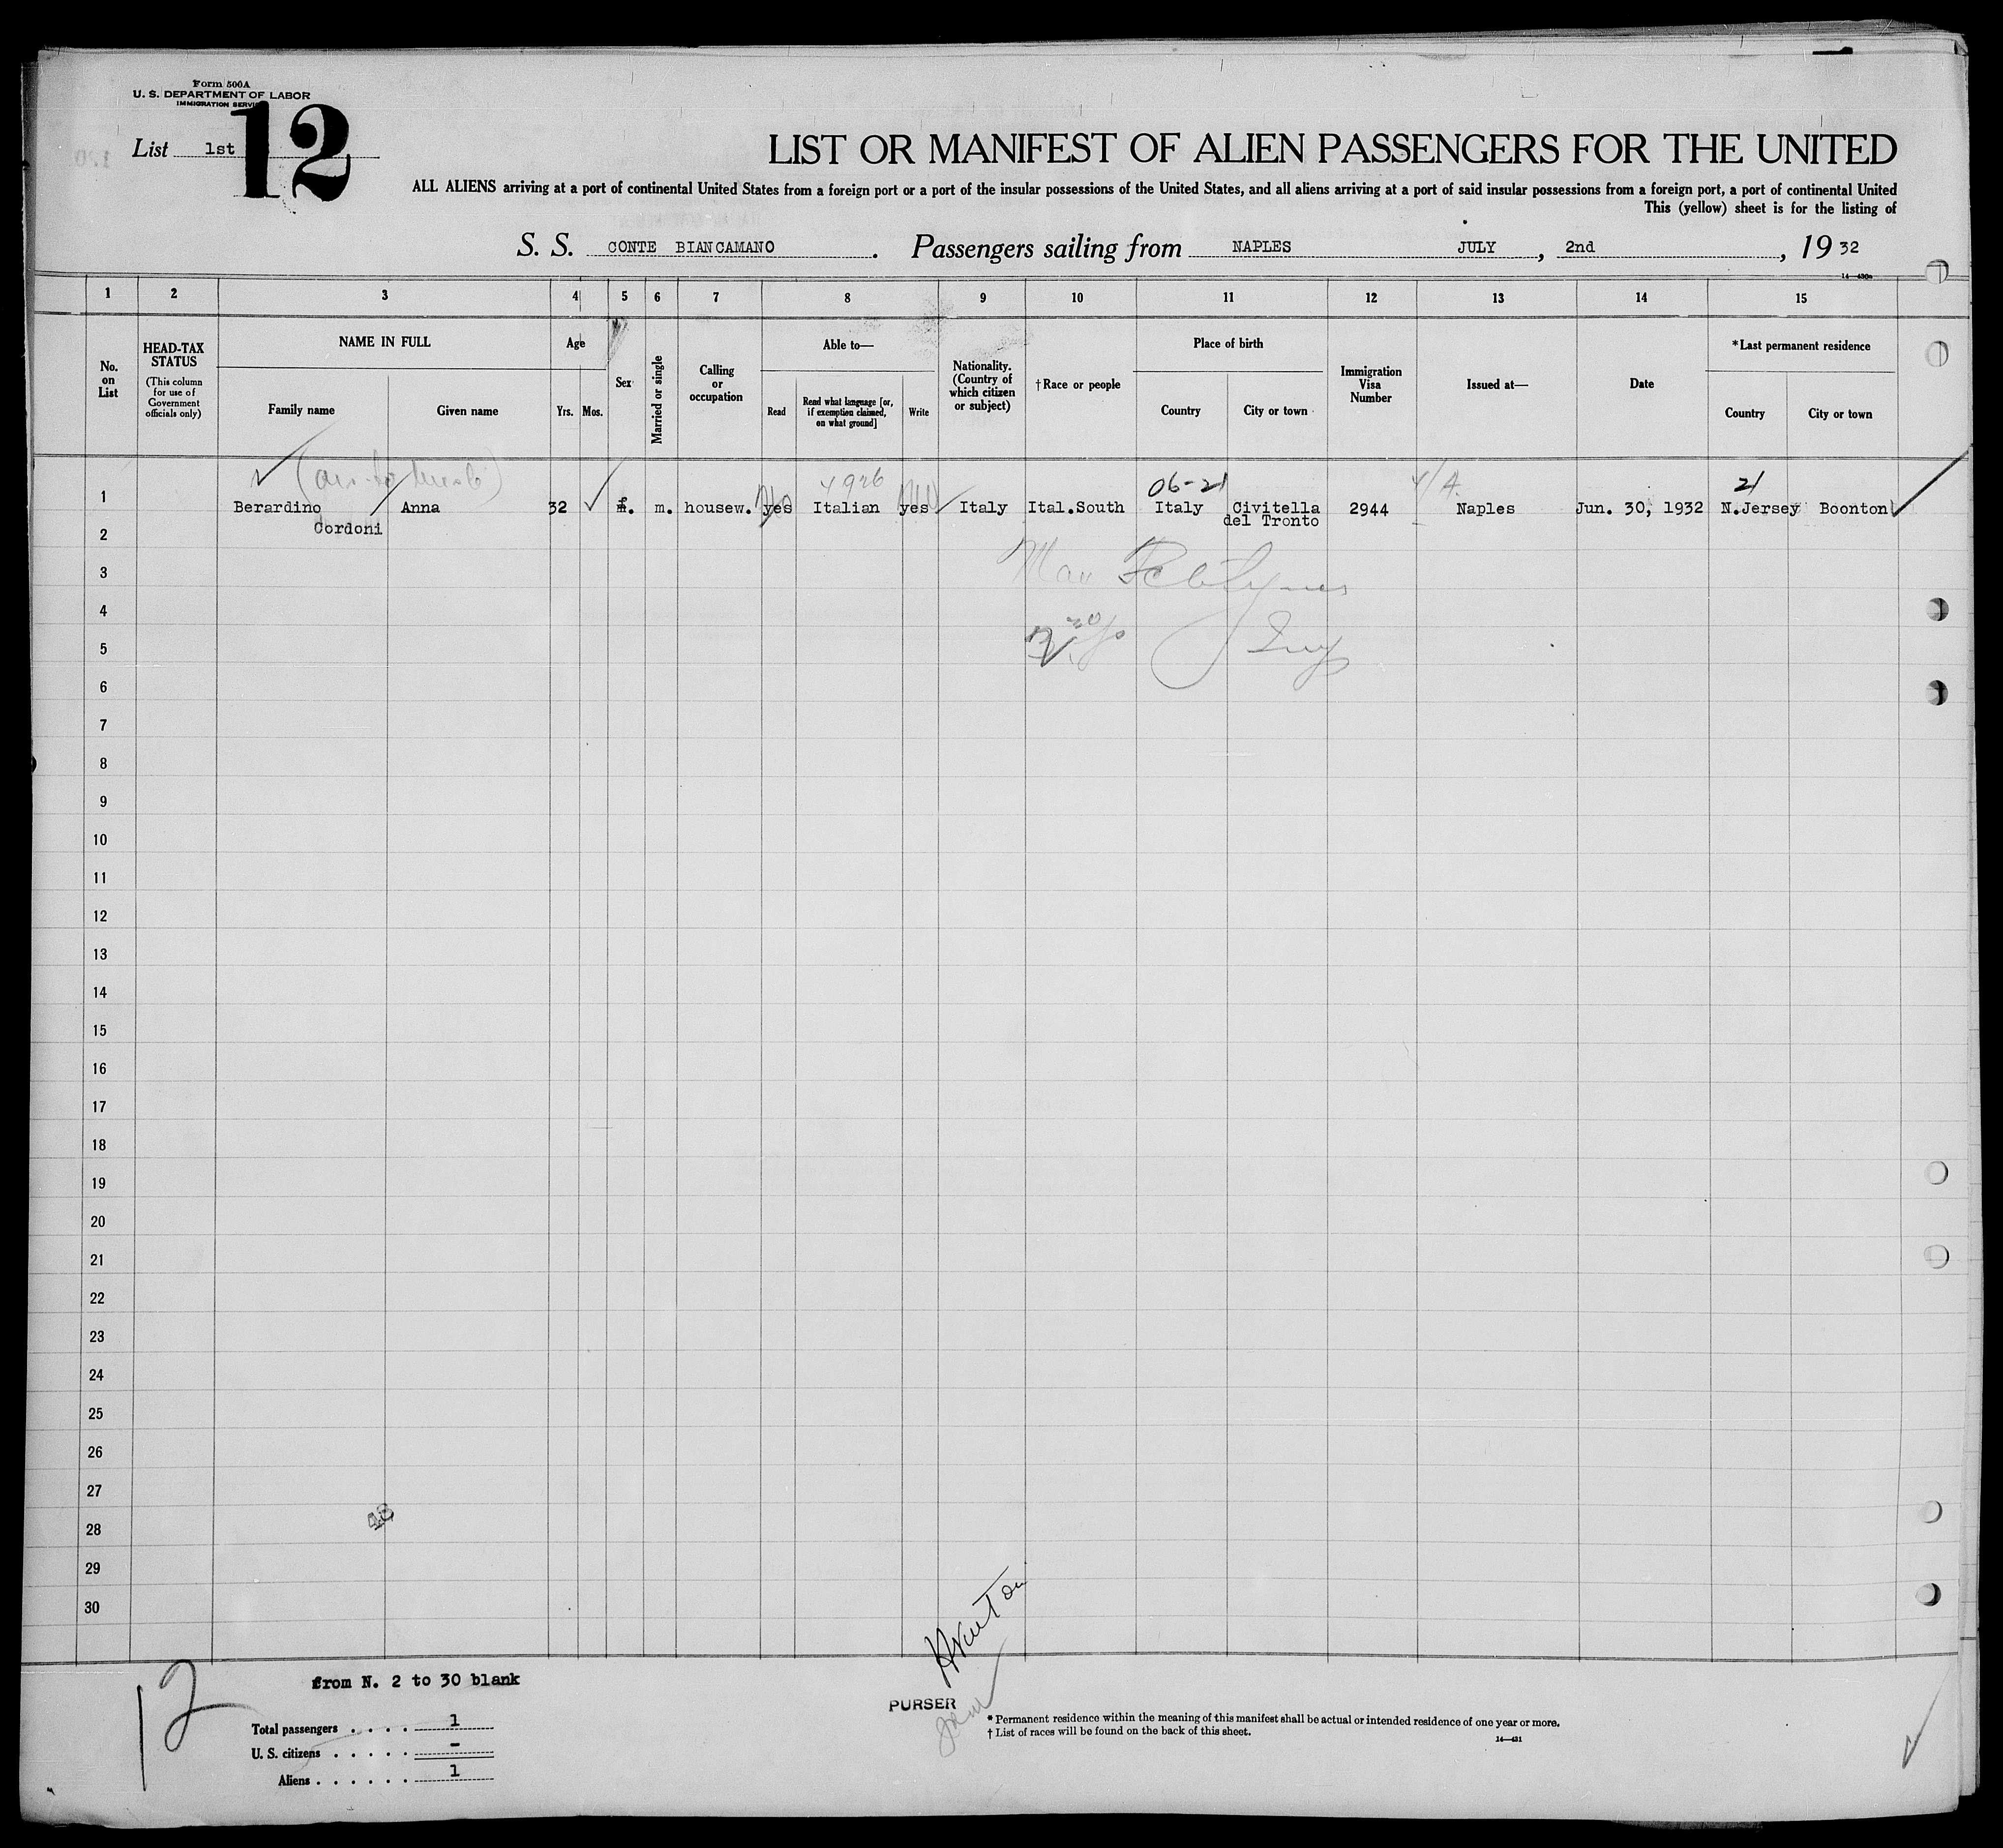 Form 500A
U. S. DEPARTMENT OF LABOR
IMMIGRATION SERVICE
List 1st
12
LIST OR MANIFEST OF ALIEN PASSENGERS FOR THE UNITED
ALL ALIENS arriving at a port of continental United States from a foreign port or a port of the insular possessions of the United States, and all aliens arriving at a port of said insular possessions from a foreign port, a port of continental United
This (yellow) sheet is for the listing of
S. S. CONTE BIANCAMANO . Passengers sailing from NAPLES JULY , 2nd , 19 32
14—430a
1 2 3 4 5 6 7 8 9 10 11 12 13 14 15
No. on List
HEAD-TAX STATUS
(This column for use of Government officials only)
NAME IN FULL
Family name
Given name
Age
Yrs. Mos.
Sex
Married or single
Calling or occupation
Able to—
Read
Read what language [or, if exemption claimed, on what ground]
Write
Nationality. (Country of which citizen or subject)
†Race or people
Place of birth
Country
City or town
Immigration Visa Number
Issued at—
Date
*Last permanent residence
Country
City or town
06-21
21
1 Berardino Anna 32 f. m. housew. yes Italian yes Italy Ital.South Italy Civitella 2944 Naples Jun. 30, 1932 N.Jersey Boonton
del Tronto
Cordoni
2
3
4
5
6
7
8
9
10
11
12
13
14
15
16
17
18
19
20
21
22
23
24
25
26
27
28
29
30
12
from N. 2 to 30 blank
Total passengers . . . . 1
U. S. citizens . . . . . -
Aliens . . . . . . 1
PURSER
* Permanent residence within the meaning of this manifest shall be actual or intended residence of one year or more.
† List of races will be found on the back of this sheet.
14—431